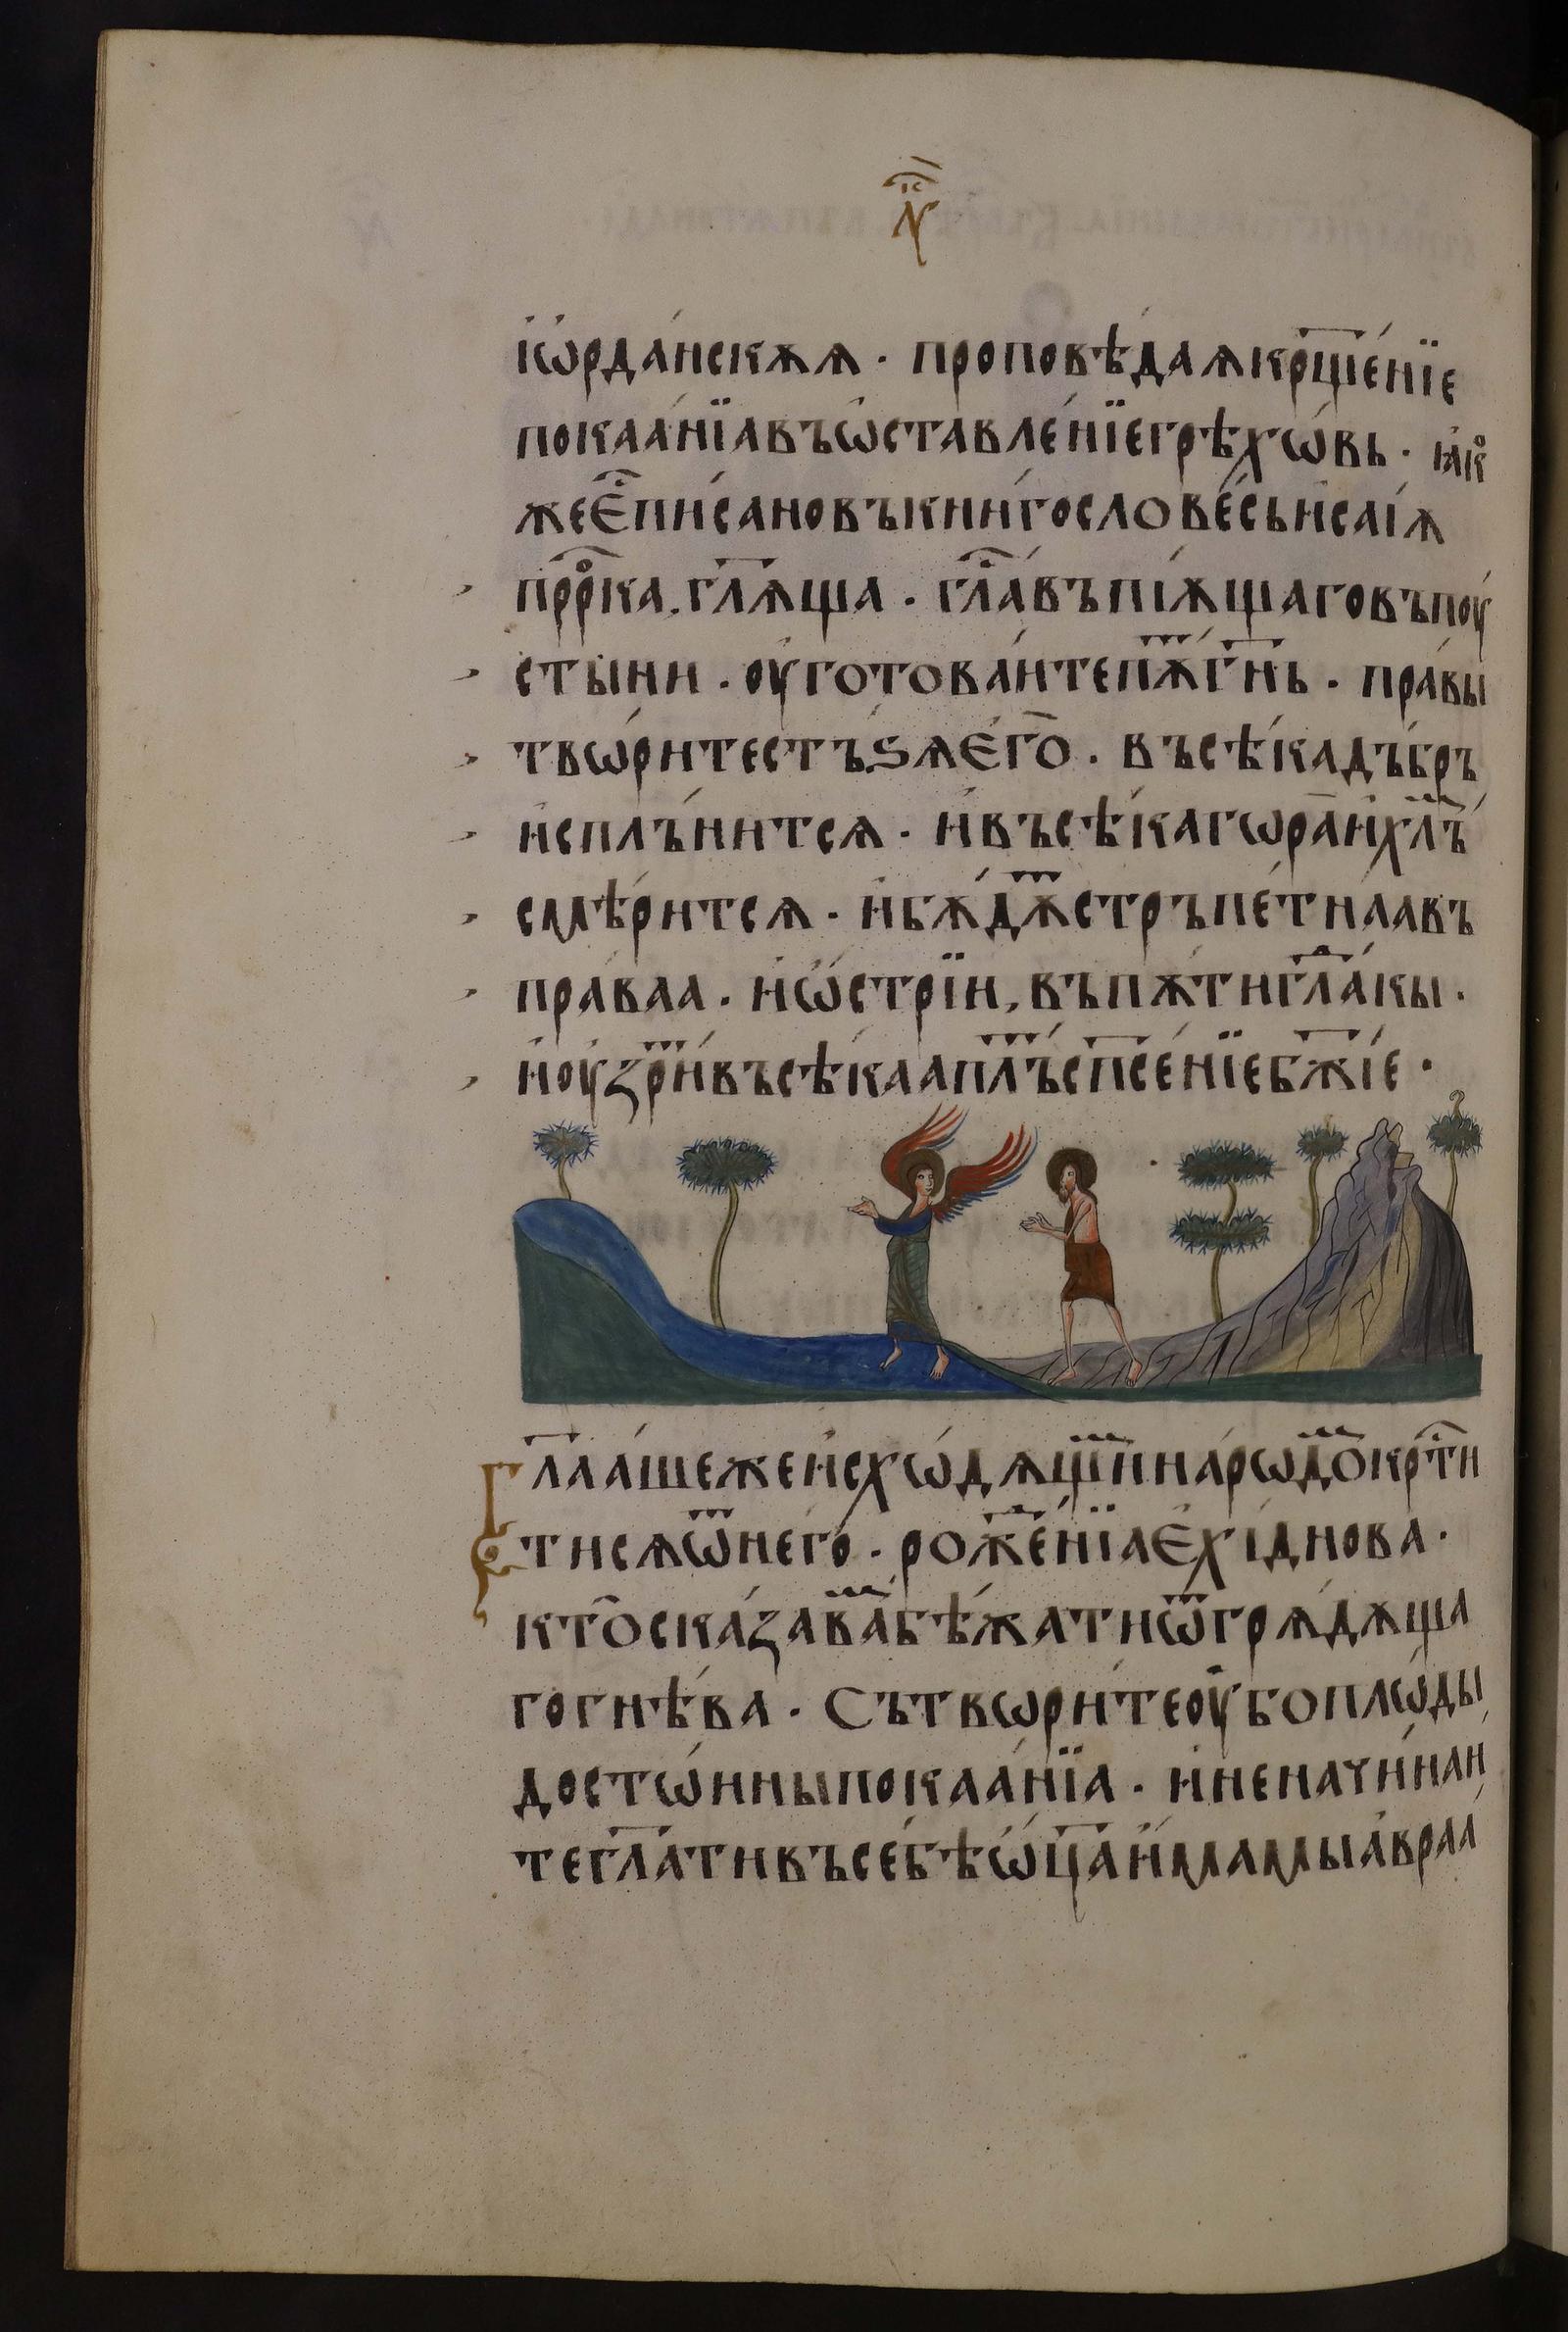 н҃
іс
іѡ҆рда́нскѫѧ · проповѣ́даѧкрщ҃е́нїе
покаа́нїавъѡ҆ставле́нїегрѣхѡ́вь · ꙗ҆́кⷪ
жеѐ҃пи́сановъкни́гослове́сьи҆саі́ѧ
прⷪ҇рка. гл҃ѧща · гла҃́въпїѫ́щаговъпоу
сты́ни · оу҆готова́итепѫⷮ҇г҃нь · пра́вы
твѡ́ритестъ́ѕѧе҆го̀ · въсѣ́кадъ́бръ
и҆сплъ́нитсѧ · и҆въсѣ́кагѡра̀и҆хлъ́ⷨ
смѣ́ритсѧ · и҆бѫ́дѫⷮстръпе́тнаавъ
пра́ваа · и҆ѡ҆́стрїи, въпѫ́тигла́ⷣкы ·
и҆оу҆́зрⷮи́въсѣ́каапльⷮ́сп҃се́нїеб҃жі́е ·
Гл҃а́шежеи҆схѡ́дѧщїиⷨна́рѡдѡⷨкрⷭ҇ти
тисѧѿнего̀ · рожⷣе́нїае҆хі́днова ·
кто̀ска́завⷨабѣ́жатиѿгрѧ́дѧща
гогнѣ́ва · Сътвори́теоу҆боплѡды̀
досто́йныпокаа́нїа · и҆неначи́наи
тегл҃а́тивъсе́бѣѡ҆ц҃а̀и҆́мамыа҆враа